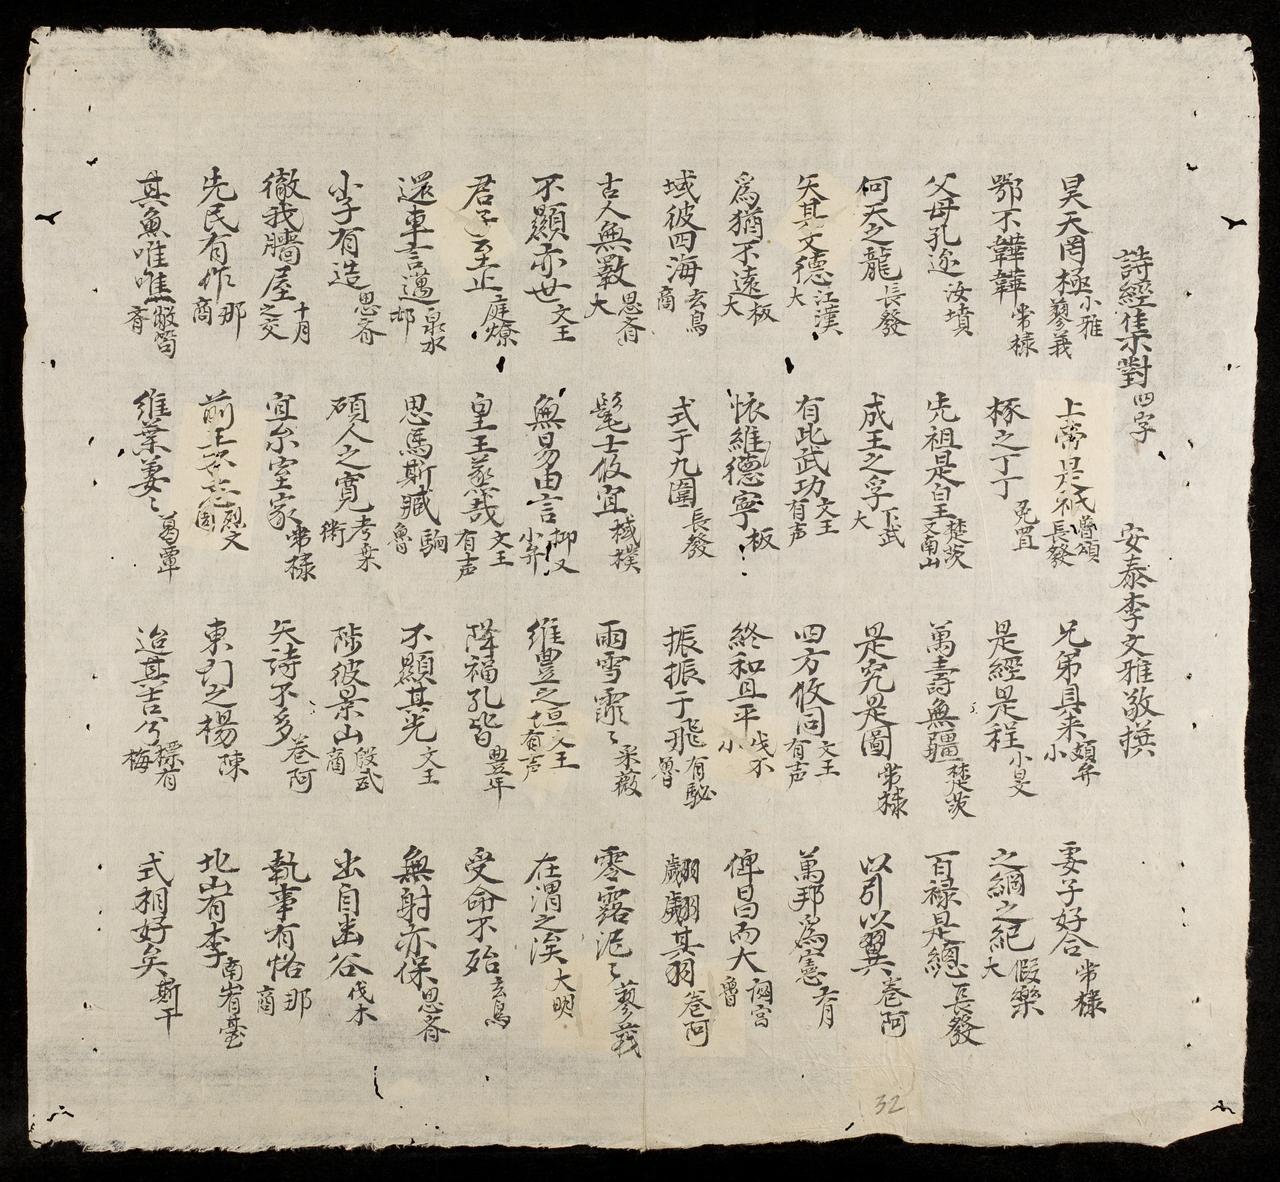 詩經集對四字 安泰李文雅敬撰
昊天罔極小雅蓼義 上帝是祇魯頌長發 兄弟具來頍弁小 妻子好合常棣
鄂不韡韡常棣 椓之丁丁兎罝 是經是程小旻 之綱之紀假樂大
父母孔邇汝墳 先祖是皇楚茨又南山 萬壽無疆楚茨 百禄是總長發
何天之龍長發 成王之孚下武大 是究是圖常棣 以引以翼卷阿
矢其文德江漢大 有此武功文王有声 四方攸同文王有声 萬邦為憲六月
為猶不遠板大 懷維德寧板 終和且平伐木小 俾昌而大閟宮魯
域彼四海玄鳥商 式于九圍長發 振振于飛有駜魯 翩翩其羽卷阿
古人無斁思齊大 髦士攸宜棫樸 雨雪霏〻采薇 零露泥〻蓼莪
不顯亦世文王 無易由言抑又小弁 維豐之垣文王有声 在渭之涘大明
君子至止庭燎 皇王烝哉文王有声 降福孔皆豊年 受命不殆玄鳥
還車言邁泉水邶 思馬斯臧駉魯 不顯其光文王 無射亦保思齊
小子有造思齊 碩人之寬考槃衛 陟彼景山殷武商 出自幽谷伐木
徹我牆屋十月之交 宜尔室家常棣 矢詩不多卷阿 執事有恪那商
先民有作那商 前王不忘烈文周 東門之楊陳 北山有李南有臺
其魚唯唯敝笱齊 維葉萋〻葛覃 迨其吉兮摽有梅 式相好矣斯干
32